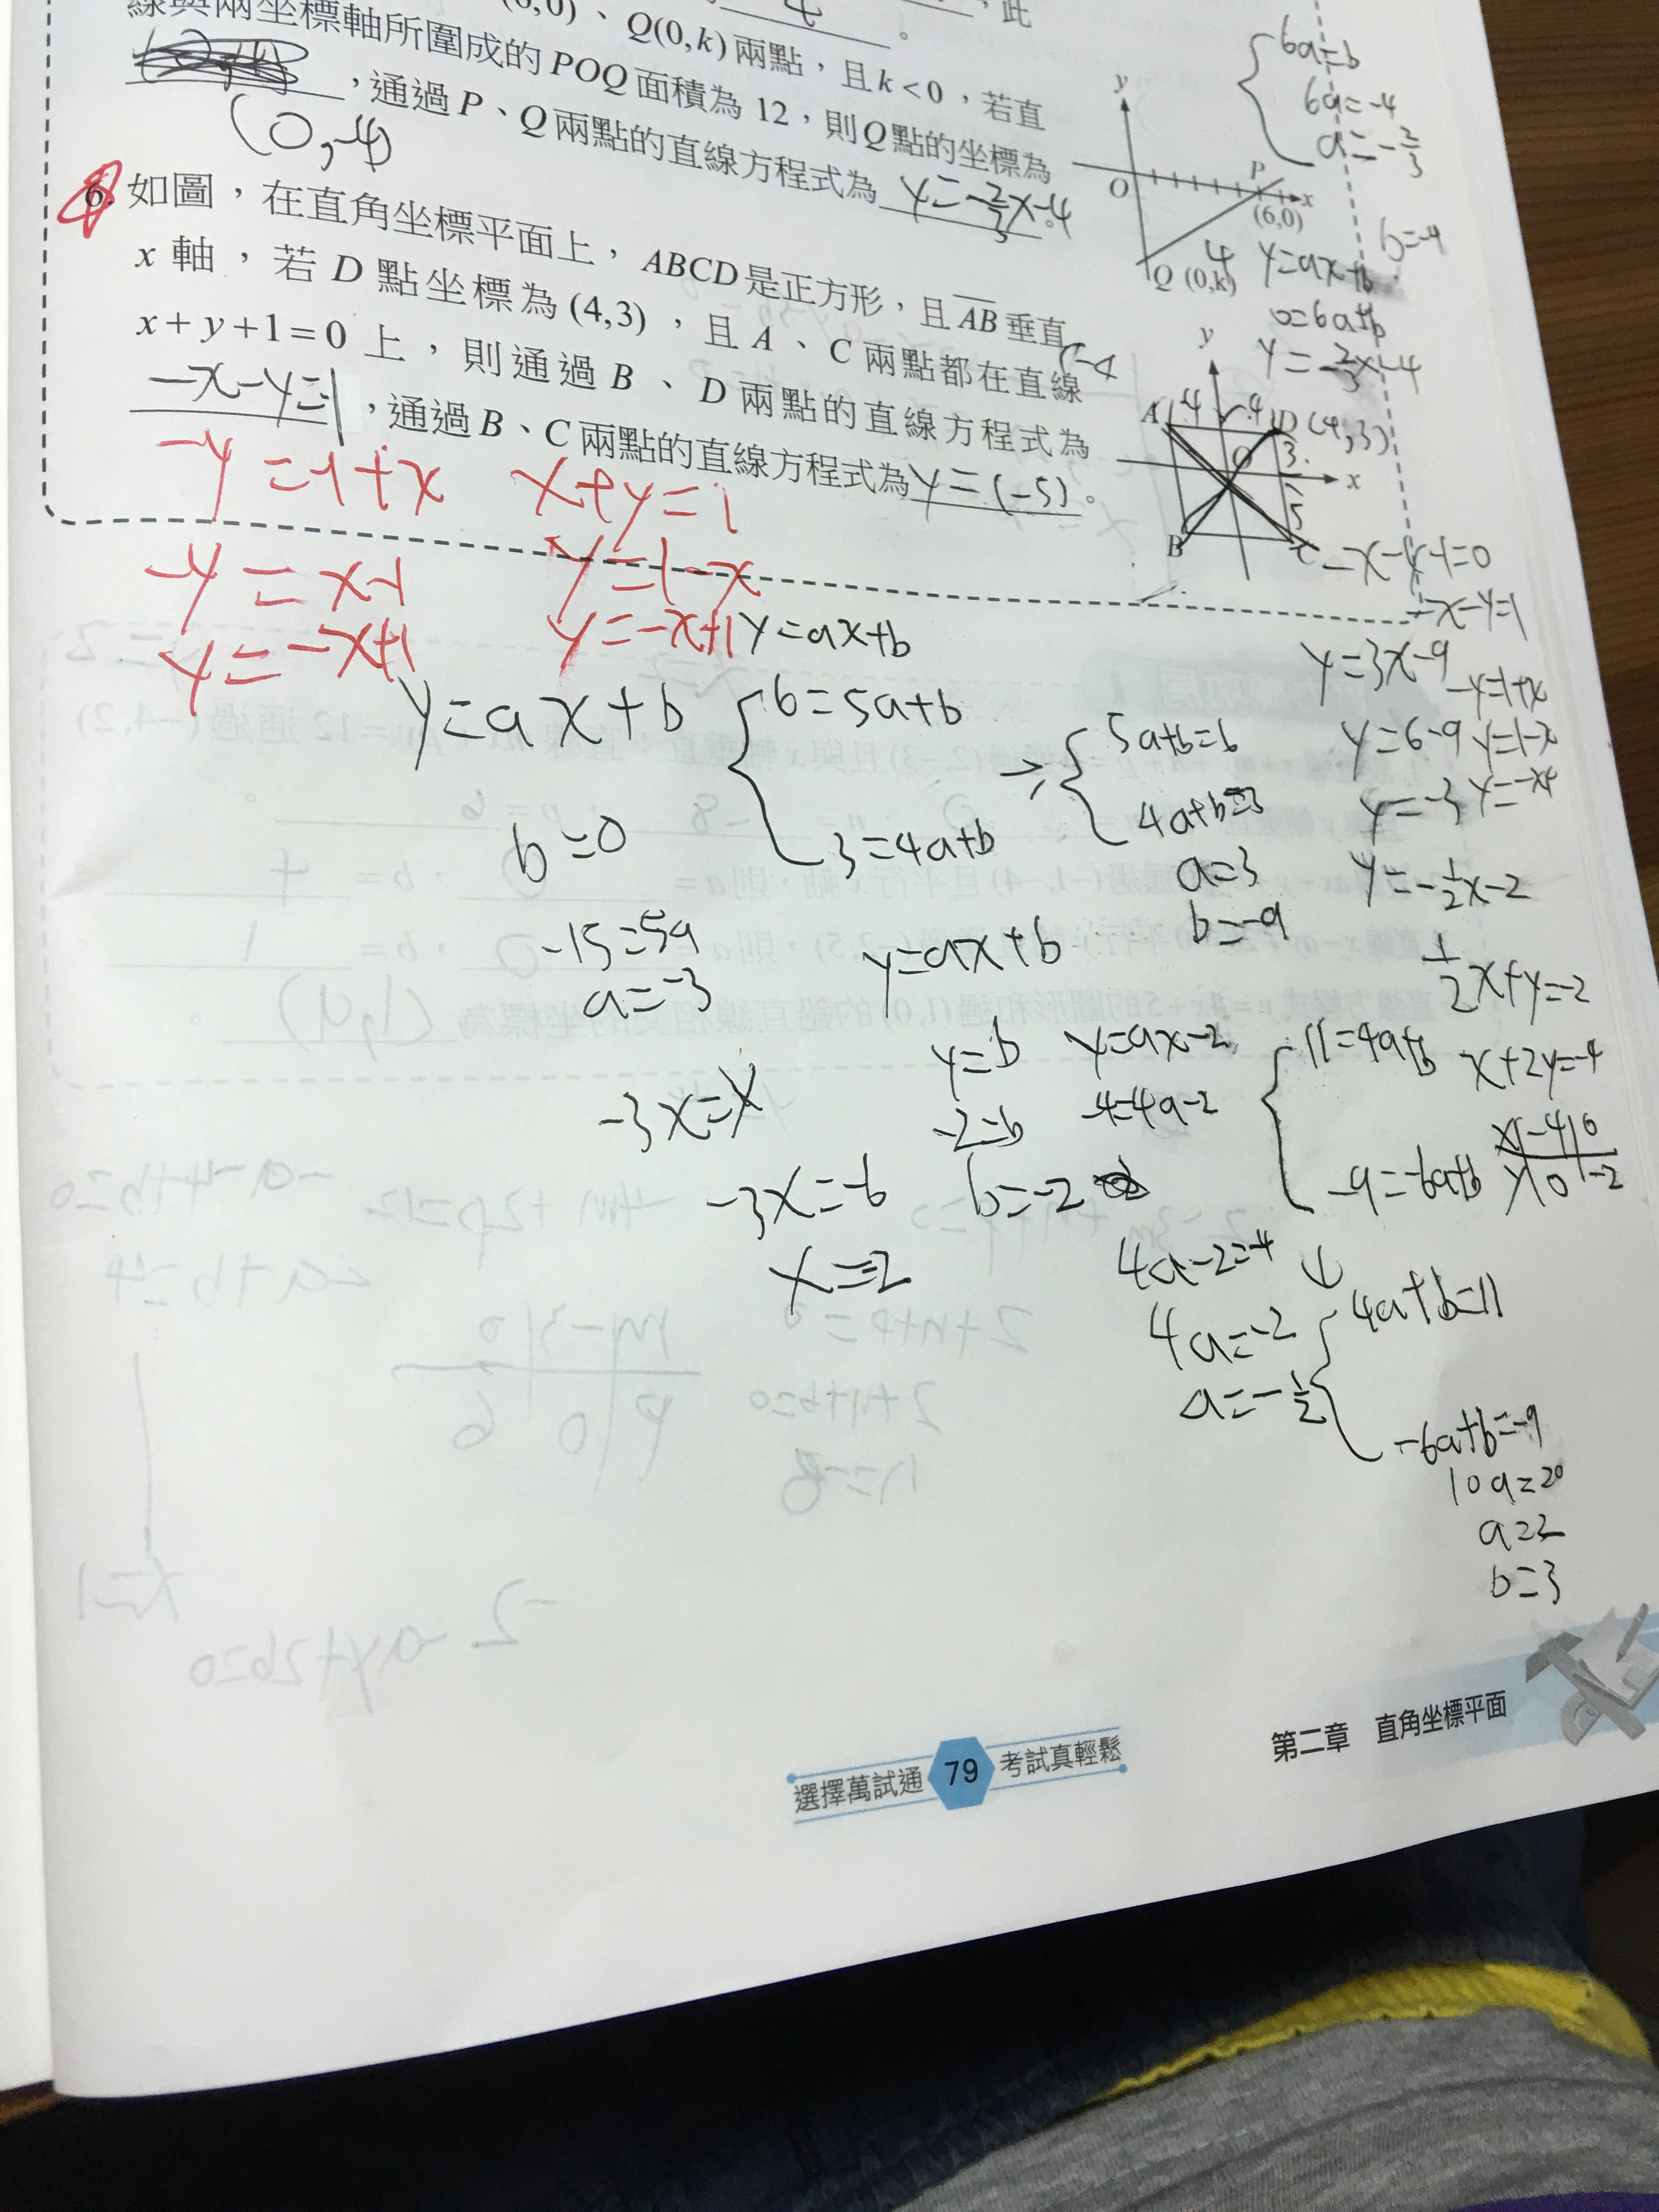 (6,0)、Q(0,k)兩點,且k<0,若直
線與兩坐標軸所圍成的POQ面積為12,則Q點的坐標為
(0,-4)
,通過P、Q兩點的直線方程式為 y=-2/3x-4。
6. 如圖,在直角坐標平面上,ABCD是正方形,且AB垂直
x軸,若D點坐標為(4,3),且A、C兩點都在直線
x+y+1=0上,則通過B、D兩點的直線方程式為
-x-y=1,通過B、C兩點的直線方程式為y=(-5)。
6a=b
6a=-4
a=-2/3
b=-4
y
O
P
x
(6,0)
Q (0,k)
4
y=ax+b
0=6a+b
y=-2/3x-4
y
A
4
4
D(4,3)
O
3
x
5
B
C
-x-y-1=0
-x-y=1
-y=1+x
x+y=1
-y=x-1
y=1-x
y=-x+1
y=-x+1
y=ax+b
y=ax+b
6=5a+b
3=4a+b
5a+b=6
4a+b=3
a=3
b=-9
y=3x-9
y=6-9
y=-3
-y=1+x
y=1-x
b=0
-15=5a
a=-3
-3x=y
-3x=-6
x=2
y=ax+b
y=b
-2=b
b=-2
y=ax-2
-4=4a-2
4a-2=-4
4a=-2
a=-1/2
y=-1/2x-2
1/2x+y=-2
x+2y=-4
x|-4|0
y|0|-2
11=4a+b
-9=-6a+b
4a+b=11
-6a+b=-9
10a=20
a=2
b=3
選擇萬試通 79 考試真輕鬆
第二章 直角坐標平面